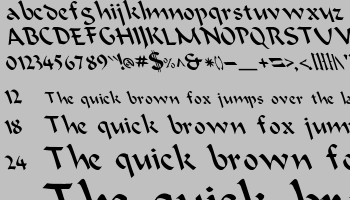 abcdefghijklmnopqrstuvwxyz
ABCDEFGHIJKLMNOPQRSTUV
0123456789
12 The quick brown fox jumps over the
18 The quick brown fox
24 The quick brown
The quick